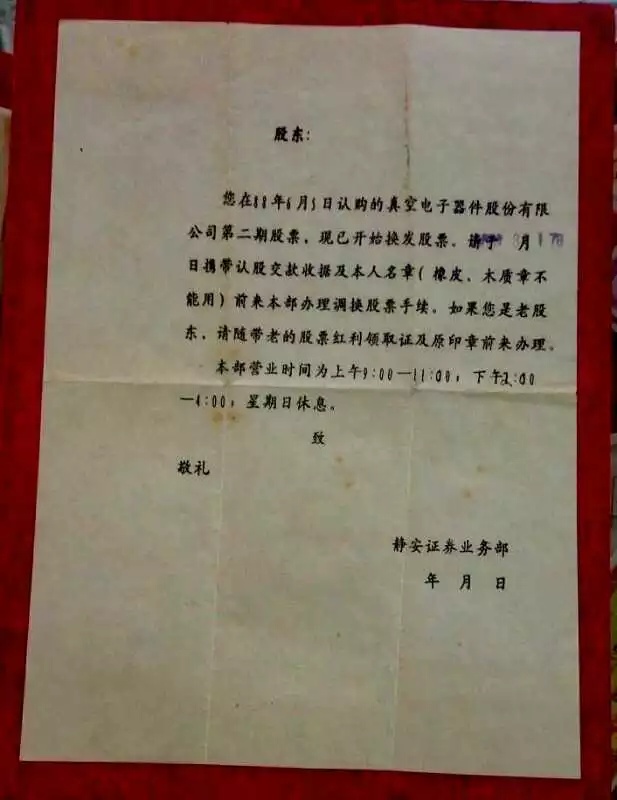 股东：
您在88年6月5日认购的真空电子器件股份有限
公司第二期股票，现已开始换发股票。请于 月
日携带认股交款收据及本人名章（橡皮、木质章不
能用）前来本部办理调换股票手续。如果您是老股
东，请随带老的股票红利领取证及原印章前来办理。
本部营业时间为上午9:00—11:00；下午1:00
—4:00；星期日休息。
致
敬礼
静安证券业务部
年 月 日